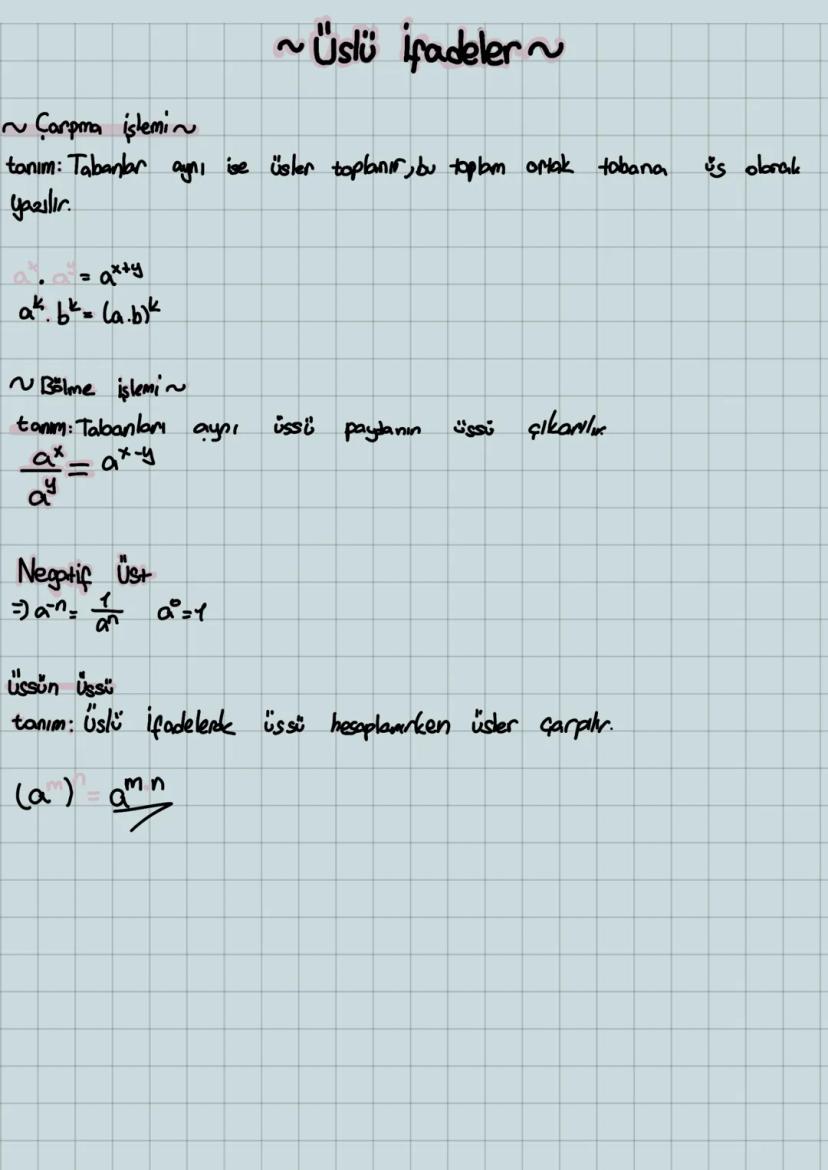 ~ Üslü İfadeler ~
~ Çarpma işlemi ~
tanım: Tabanlar aynı ise üsler toplanır, bu toplam ortak tabana üs olarak
yazılır.
aˣ . aʸ = aˣ⁺ʸ
aᵏ . bᵏ = (a.b)ᵏ
~ Bölme işlemi ~
tanım: Tabanları aynı üssü paydanın üssü çıkarılır
aˣ/aʸ = aˣ⁻ʸ
Negatif Üst
⇒ a⁻ⁿ = 1/aⁿ a⁰ = 1
üssün üssü
tanım: üslü ifadelerde üssü hesaplanırken üsler çarpılır.
(aᵐ)ⁿ = aᵐ·ⁿ